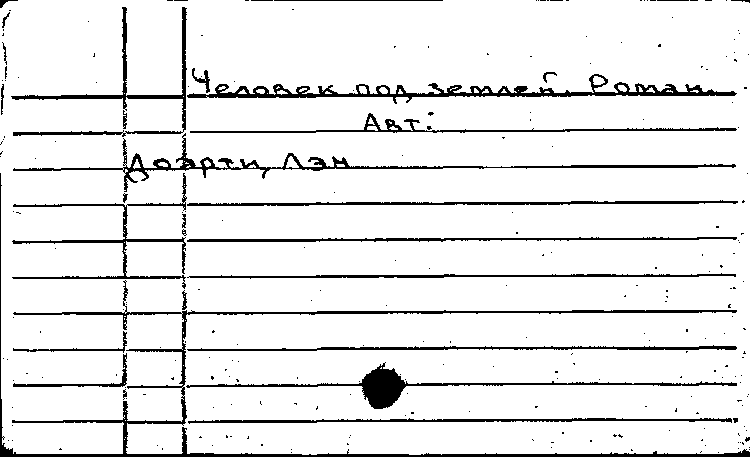 Человек под землей. Роман.
Авт.:
Доэрти, Лэн